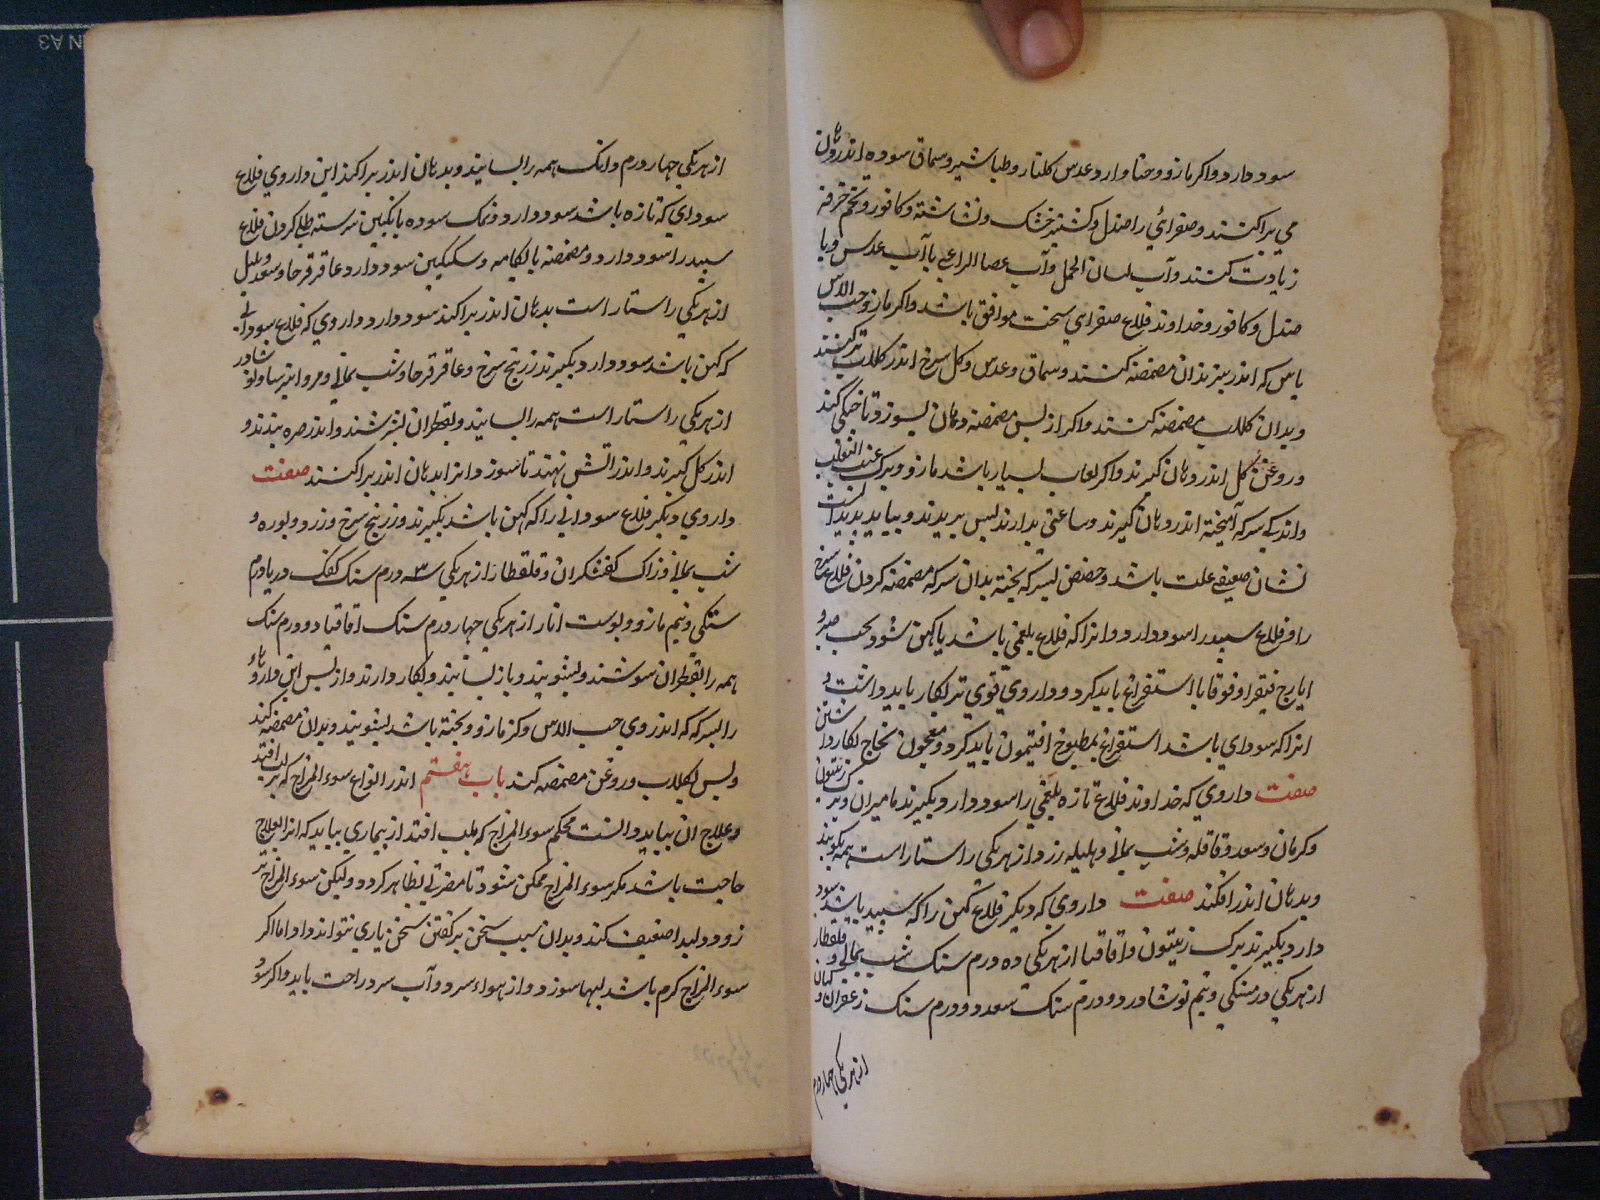 سود دارد واکر مازو و حنا وارد عدس کلنار و طباشیر و سماق سوده اندر دهان
می پراکنند و صفرائی را صندل و کشنیز خشک و نشاشته و کافور و تخم خرفه
زیادت کنند و آب لسان الحمل و آب عصا الراعی یا آب عدس و با
صندل و کافور و خداوند قلاع صفرای سخت موافق باشد واکر مازو و حب الاس
باس که اندر بزند ان مضمضه کنند و سماق و عدس و کل سرخ اندر کلاب تر کنند
و بدان کلاب مضمضه کنند واکر از بس مضمضه دهان بسوزد تا خنکی کند
و روغن کل اندر دهان کیرند واکر لعاب بسیار باشد مازو و برک عنب الثعلب
واندکی سرکه آمیخته اندر دهان کیرند و ساعتی بدارند بس بریزند و بباید دانست
نشان ضعیفی علت باشد و حضض بسرکه بخته بدان سرکه مضمضه کردن قلاع سرخ
را و قلاع سبید را سود دارد و انرا که قلاع بلغمی باشد یا کهن شود بحب صبر و
ایارج فیقرا و قوقایا استفراغ باید کرد و داروی قوی تر بکار باید داشت و
انرا که سودای باشد استفراغ بمطبوخ افتیمون باید کرد و معجون نجاح بکار داشتن
صفت داروی که خداوند قلاع تازه بلغمی را سود دارد بکیرند مامیران و برک زیتون
و کرمان و سعد و قاقله و شب یمانی و هلیله زرد از هر یکی راستا راست همه بکوبند
و بدهان اندر افکند صفت داروی که دیکر قلاع کهن را که سبید باشد سود
دارد بکیرند برک زیتون و اقاقیا از هر یکی ده درم سنک شب یمانی و قلقطار
از هر یکی درمسنکی و نیم نوشادر دو درم سنک سعد دو درم سنک زعفران و
از هر یکی چهار درم
از هر یکی چهار درم و انک همه را بسایند و بدهان اندر پراکنند این داروی قلاع
سودای که تازه باشد سود دارد و نمک سوده بانکبین سرشته طلی کردن قلاع
سبید را سود دارد و مضمضه بابکامه و سکنکبین سود دارد عاقرقرحا و سعد
از هر یکی راستا راست بدهان اندر پراکند سود دارد داروی که قلاع سودائی
که کهن باشد سود دارد بکیرند زرنیخ سرخ و عاقرقرحا و شب یمانی و
از هر یکی راستا راست همه را بسایند و بقطران بسرشند و اندر صره بندند و
اندر کل کیرند و اندر اتش نهند تا بسوزد و انرا بدهان اندر پراکنند صفت
داروی دیکر قلاع سودائی را که کهن باشد بکیرند زرنیخ سرخ و زرد و بوره و
شب یمانی و زاک کفشکران و قلقطار از هر یکی سه درم سنک کفک دریا درم
سنکی و نیم مازو و بوست انار از هر یکی چهار درم سنک اقاقیا دو درم سنک
همه را بقطران بسرشند و بشویند و باز بسایند و بکار دارند و از بس این داروها
را بسرکه که اندر وی حب الاس و کزمازو و بخته باشد بشویند و بدان مضمضه کند
و بس بکلاب و روغن مضمضه کند باب هفتم اندر انواع سوء المزاج که بر لب افتد
و علاج ان بباید دانست محکم سوء المزاج که بلب افتد از بیماری بباید که انرا بعلاج
حاجت باشد مکر سوء المزاج ممکن شود تا مضرتی بظاهر کردد ولیکن سوء المزاج تر
زود و لب را ضعیف کند و بدان سبب سخن بر کفتن سخن یاری نتواند داد اما اکر
سوء المزاج کرم باشد لبها سوزد و از هواء سرد و آب سرد راحت یابد واکر سرد